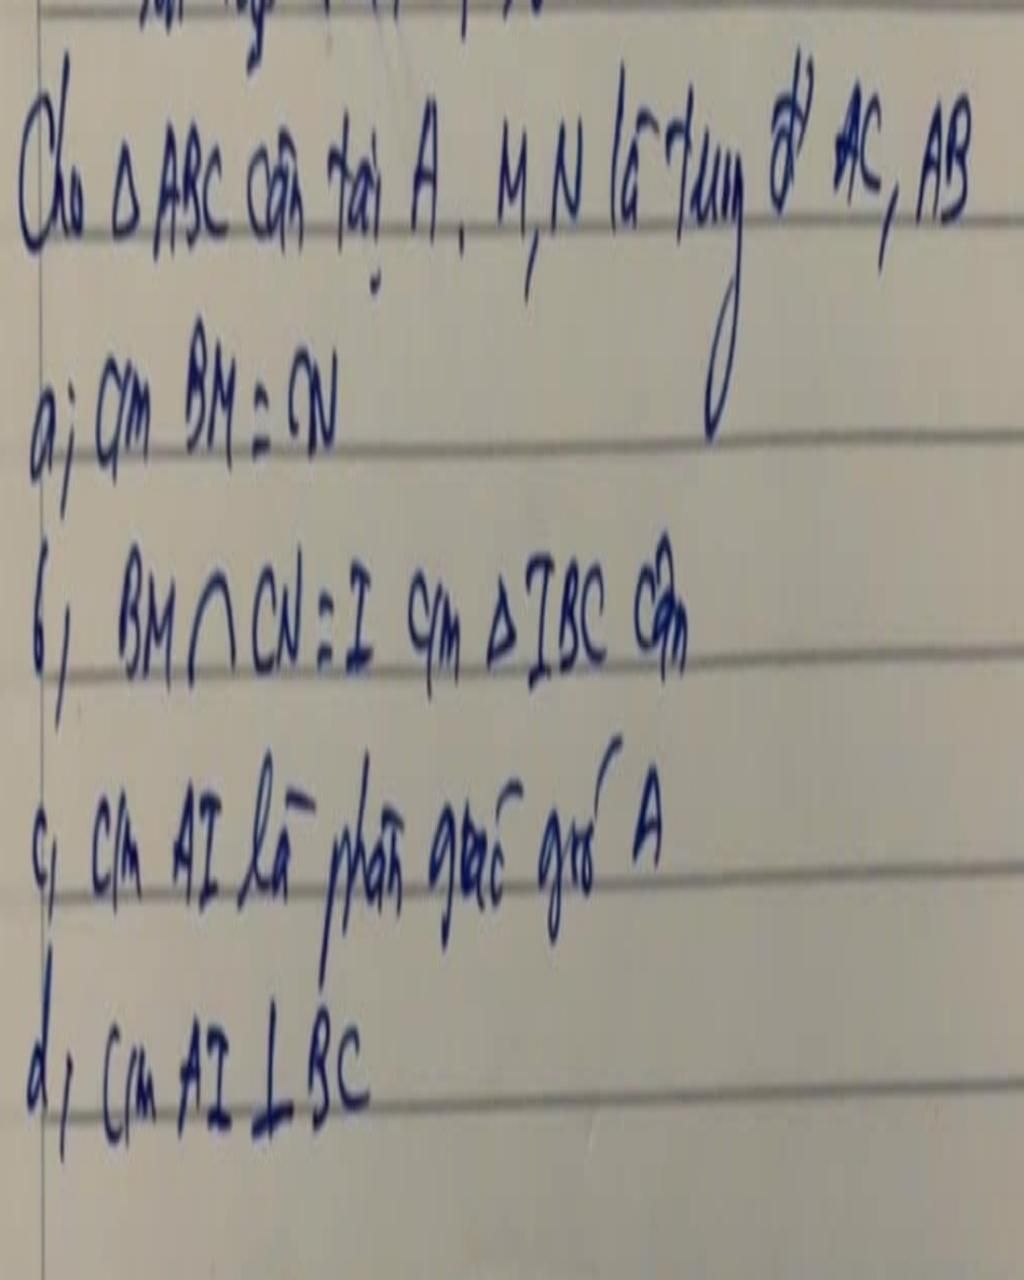 Cho Δ ABC cân tại A. M, N là trung đ' AC, AB
a; CM BM = CN
b, BM ∩ CN = I CM Δ IBC cân
c, CM AI là phân giác góc A
d, CM AI ⊥ BC